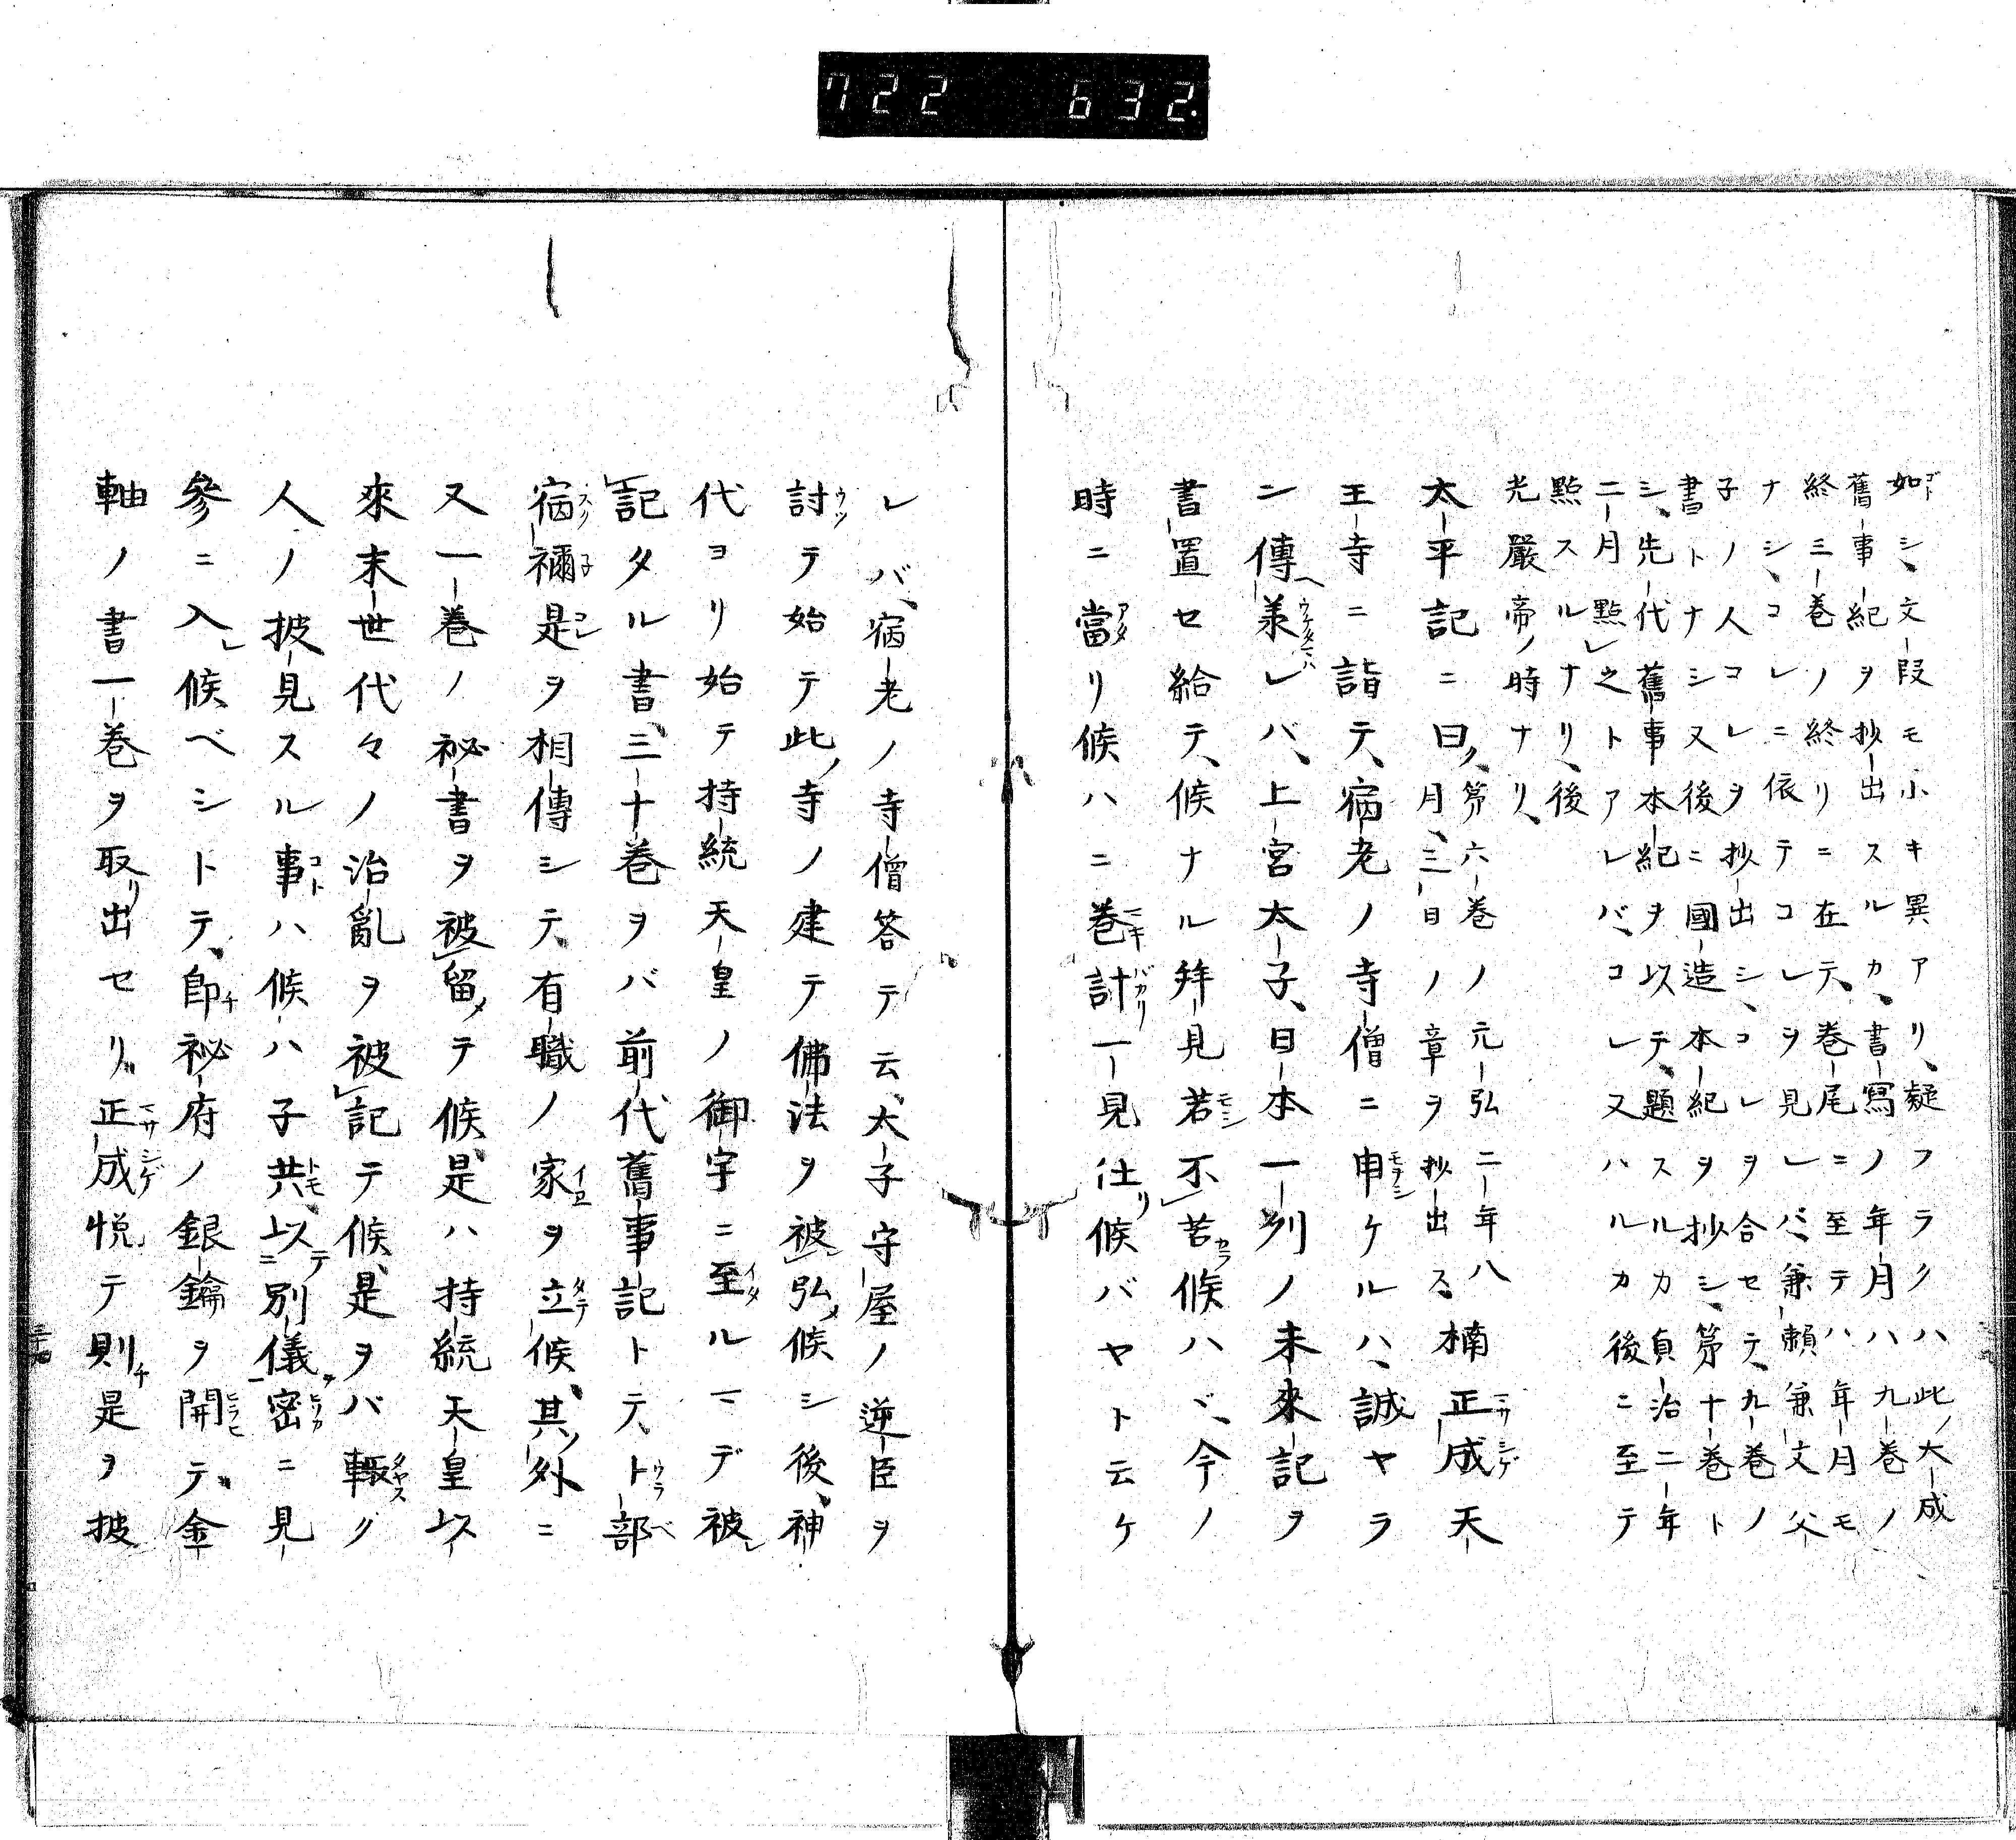 722 632.
如シ、文段モ小キ異アリ、疑フラクハ此ノ大成
舊事紀ヲ抄出スルカ、書寫ノ年月ハ九巻ノ
終三巻ノ終リニ在テ、巻尾ニ至テハ年月モ
ナシ、コレニ依テコレヲ見レバ、兼頼兼文父
子ノ人コレヲ抄出シ、コレヲ合セテ、九巻ノ
書トナシ又後ニ國造本紀ヲ抄シ、第十巻ト
シ、先代舊事本紀ヲ以テ、題スルカ貞治二年
二月點之トアレバ、コレ又ハルカ後ニ至テ
點スルナリ、後
光嚴帝ノ時ナリ、
太平記ニ曰ク、第六巻ノ元弘二年八月、三日ノ章ヲ抄出ス、楠正成天
王寺ニ詣テ、宿老ノ寺僧ニ申ケルハ、誠ヤラ
ン傳ヘ承レバ、上宮太子、日本一列ノ未來記ヲ
書置セ給テ、候ナル拜見若不苦候ハヾ、今ノ
時ニ當リ候ハニ巻計一見仕リ候バヤト云ケ
レバ、宿老ノ寺僧答テ云、太子守屋ノ逆臣ヲ
討テ始テ此ノ寺ノ建テ佛法ヲ被弘メ候シ後、神
代ヨリ始テ持統天皇ノ御宇ニ至ルマデ被
記タル書、三十巻ヲバ前代舊事記トテ、卜部
宿禰是ヲ相傳シテ、有職ノ家ヲ立候、其ノ外ニ
又一巻ノ祕書ヲ被留メテ候、是ハ持統天皇以
來末世代々ノ治亂ヲ被記テ候、是ヲバ輙ク
人ノ披見スル事ハ候ハ子共、以テ別儀ヲ密ニ見
參ニ入候ベシトテ、即チ祕府ノ銀鑰ヲ開テ、金
軸ノ書一巻ヲ取リ出セリ、正成悦テ則チ是ヲ披